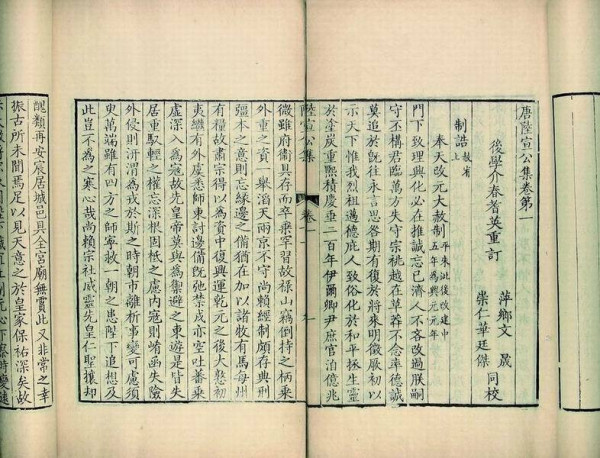 唐陸宣公集卷第一
後學介春耆英重訂
萍鄉文晟
崇仁華廷傑
同校
制誥 赦宥上
奉天改元大赦制 平朱泚後改建中五年為興元元年
門下致理興化必在推誠忘己濟人不吝改過朕嗣
守丕構君臨萬方失守宗祧越在草莽不念率德誠
莫追於既往永言思咎期有復於將來明徵厥初以
示天下惟我烈祖邁德庇人致俗化於和平拯生靈
於塗炭重熙積慶垂二百年伊爾卿尹庶官洎億兆
陸宣公集 卷一
微雖府衛具存而卒乘罕習故祿山竊倒持之柄乘
外重之資一舉滔天兩京不守尚賴經制頗存典刑
彊本之意則忘緣邊之備猶在加以諸牧有馬每州
有糧故肅宗得以為資中復興運乾元之後大憝初
夷繼有外虞悉師東討邊備既弛禁戍亦空吐蕃乘
虛深入為寇故先皇帝莫與為禦避之東遊是皆失
居重馭輕之權忘深根固柢之慮內寇則崤函失險
外侵則汧渭為戎於斯之時朝市離析事變可虞須
臾萬端雖有四方之師寧救一朝之患陛下追想及
此豈不為之寒心哉尚賴宗社威靈先皇仁聖攘却
醜類再安宸居城邑具全宮廟無霣此又非常之幸
振古所未聞焉足以見天意之於皇家保祐深矣故